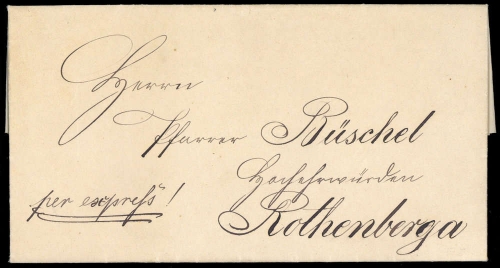 Herrn
Pfarrer Büschel
Hochehrwürden
per expreſs!
Rothenberga